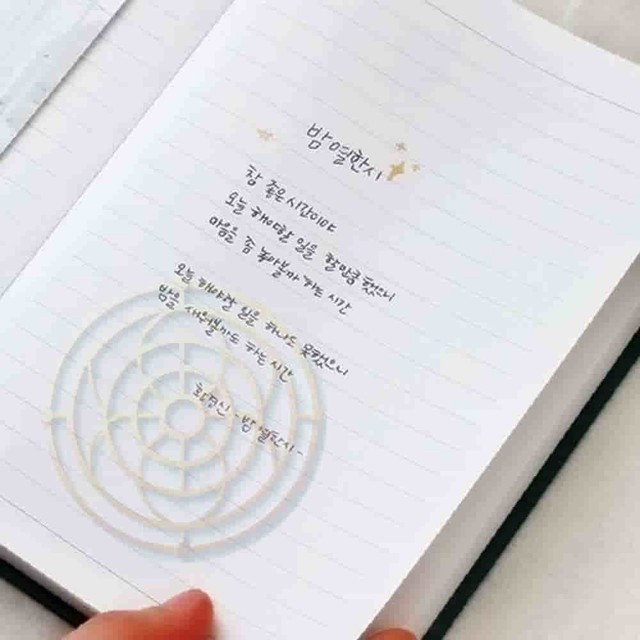 밤 열한시
참 좋은 시간이야
오늘 해야할 일을 할만큼 했으니
마음을 좀 놓아볼까 하는 시간
오늘 해야할 일을 하나도 못했으니
밤을 새워볼까도 하는 시간
황경신 - 밤 열한시 -